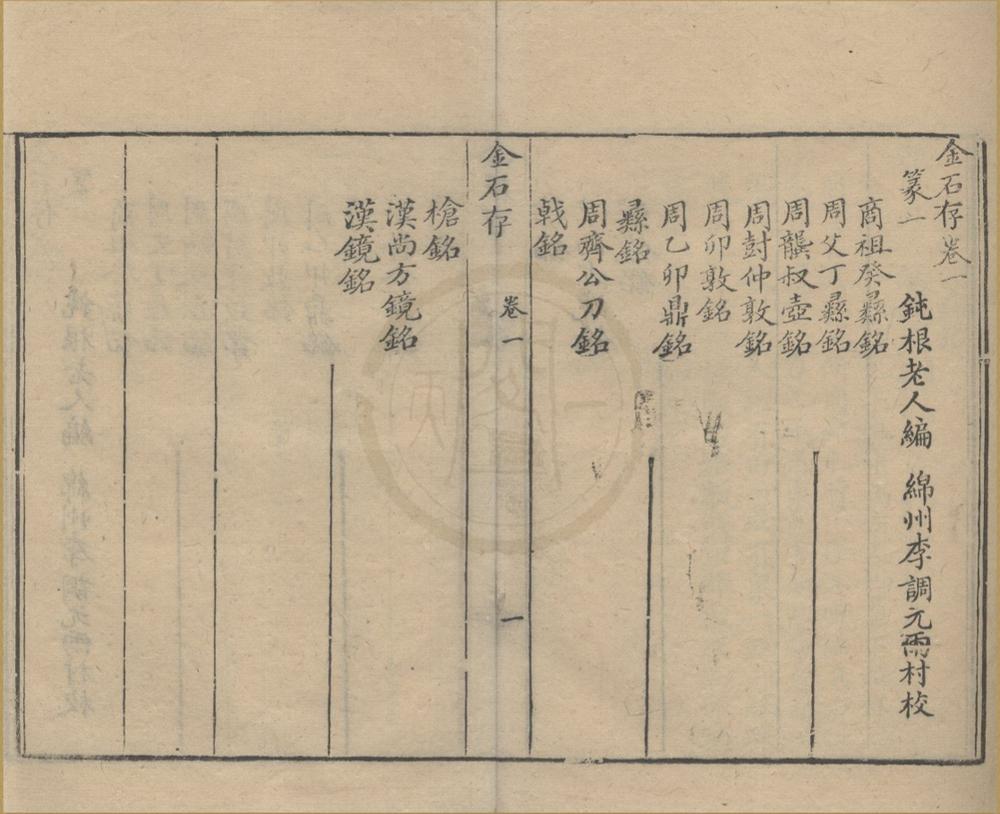 金石存卷一
篆一 鈍根老人編 綿州李調元雨村校
商祖癸彞銘
周父丁彞銘
周龔叔壺銘
周尌仲敦銘
周卯敦銘
周乙卯鼎銘
彞銘
周齊公刀銘
戟銘
金石存 卷一 一
槍銘
漢尚方鏡銘
漢鏡銘